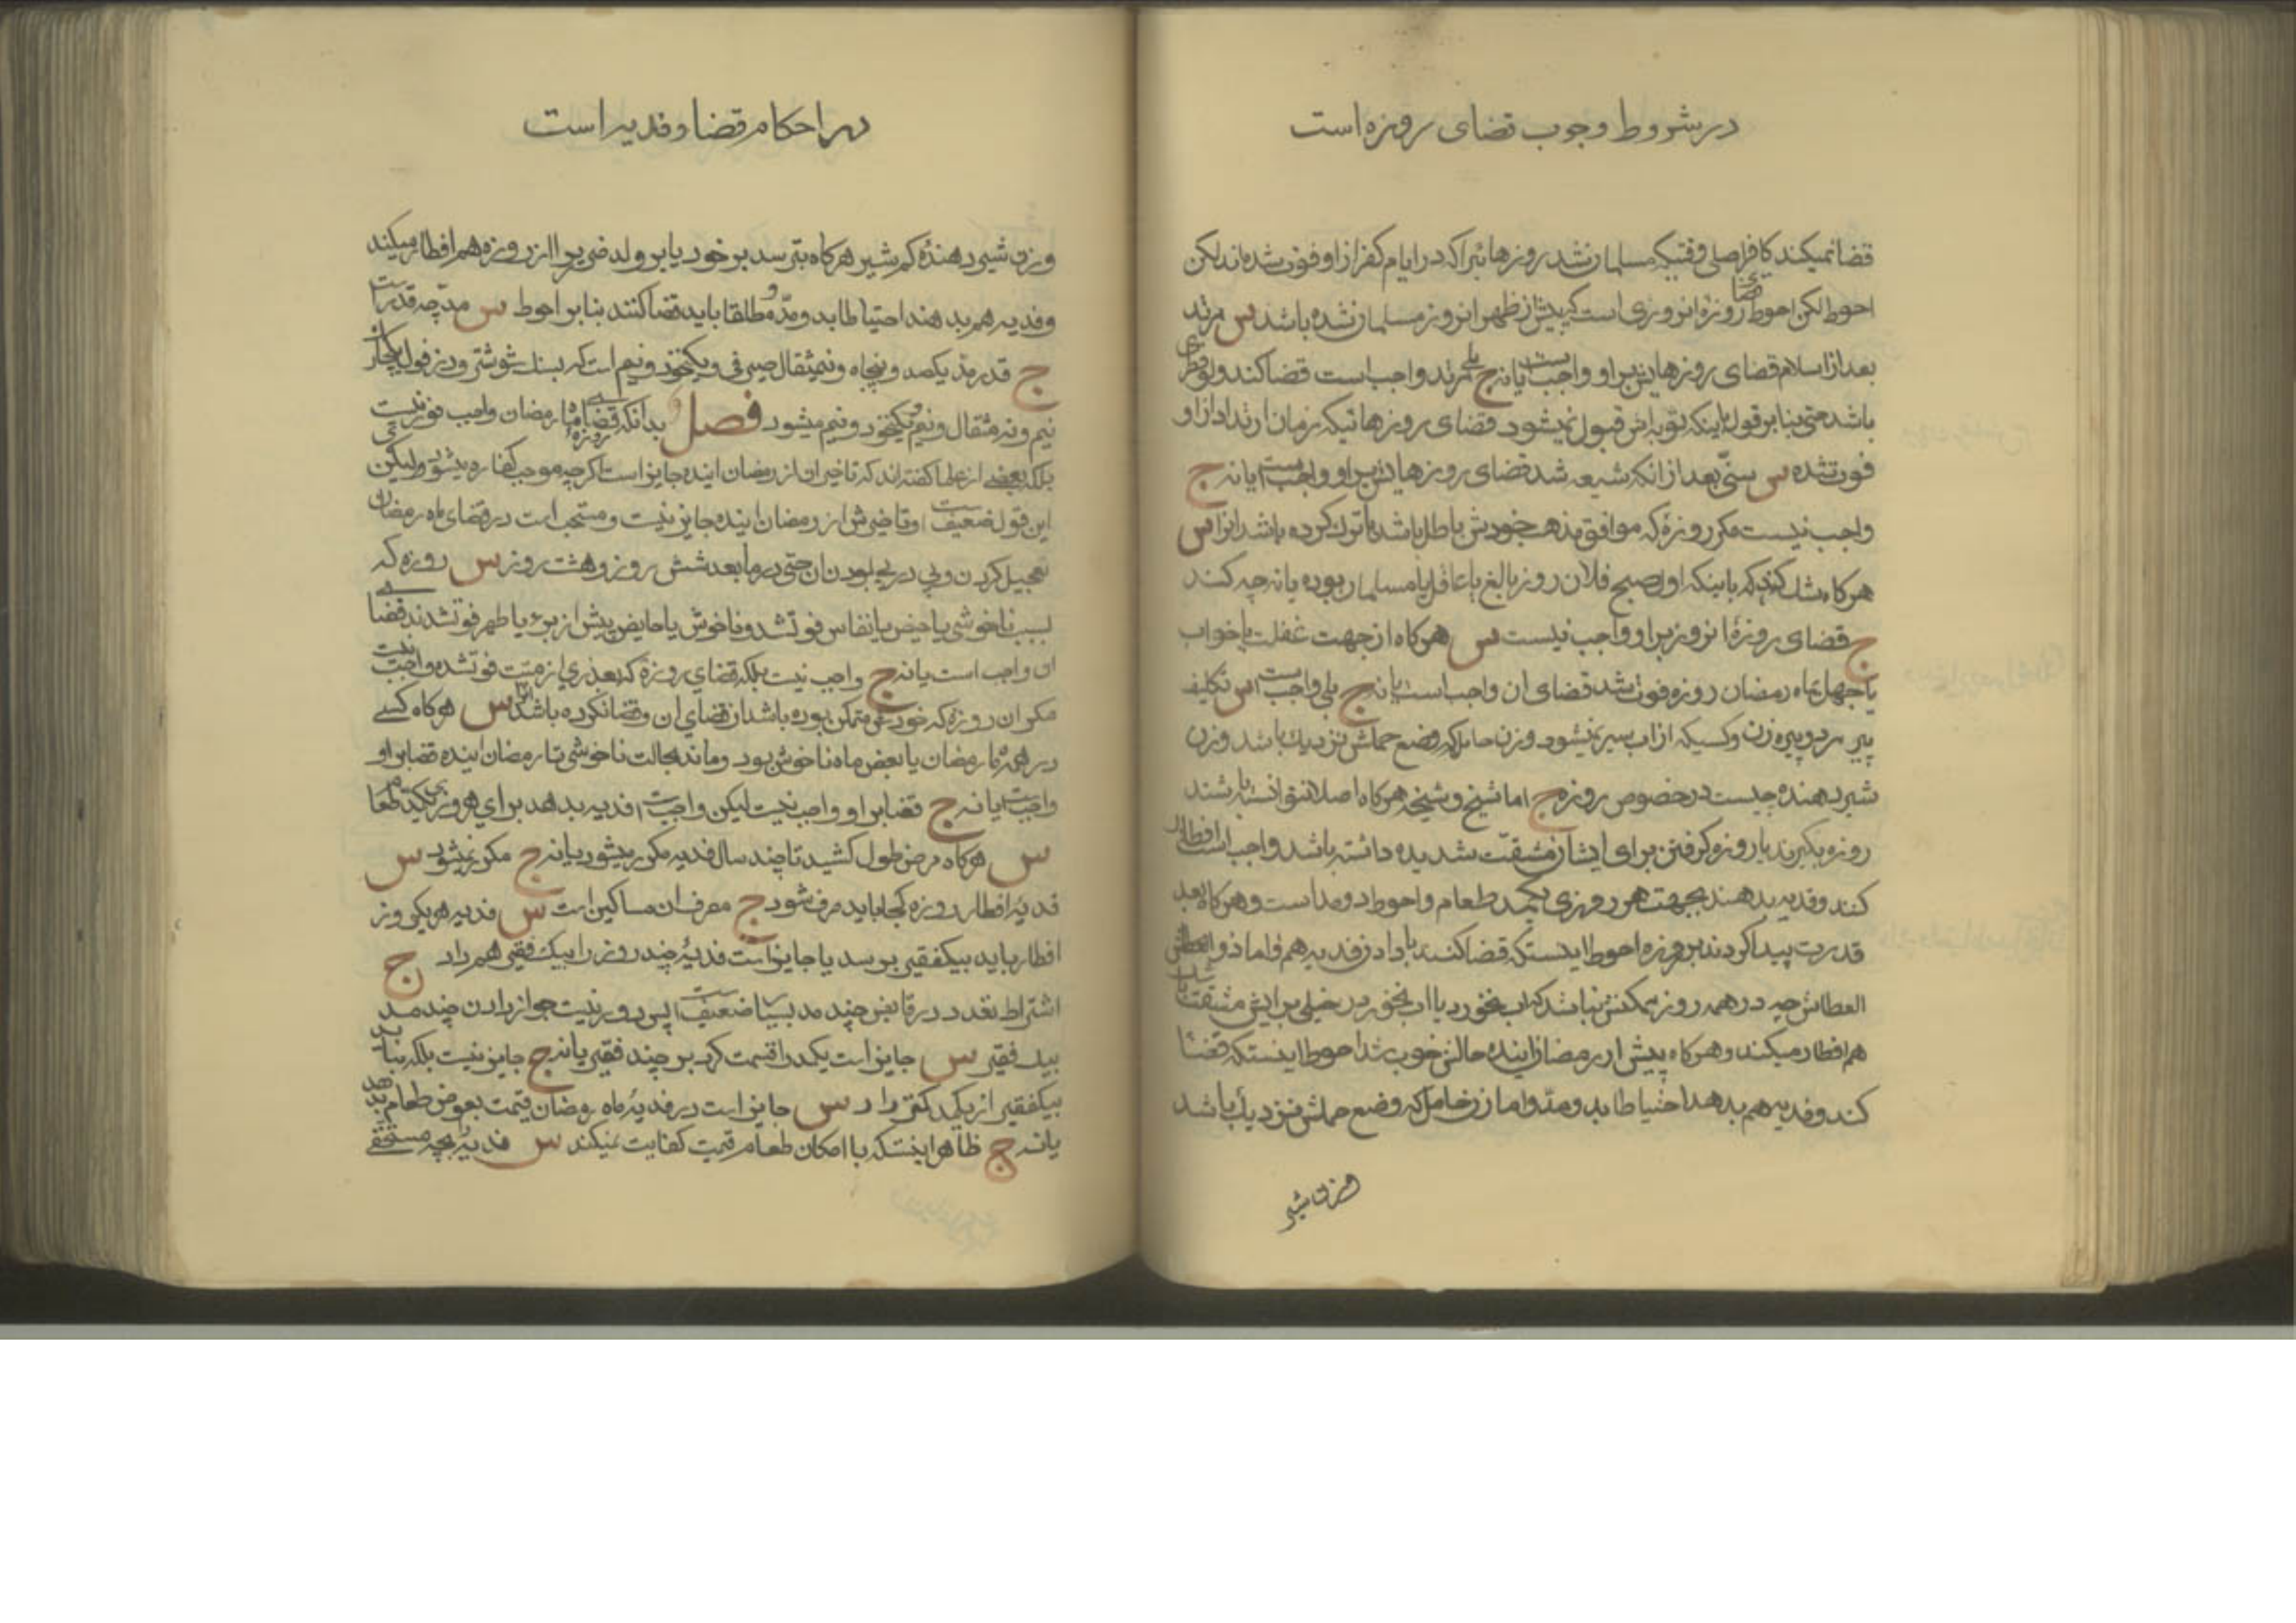 در شروط وجوب قضای روزه است
قضا نمیکند کافر اصلی وقتیکه مسلمان شد روزهائیرا که در ایام کفر از او فوت شده‌اند لکن
احوط لکن احوط قضای روزهٔ انروزی است که پیش از ظهر انروز مسلمان شده باشد س مرتد
بعد از اسلام قضای روزهایش بر او واجبست یا نه ج بلی مرتد واجب است قضا کند ولو فطری
باشد حتی بنا بر قول باینکه توبه‌اش قبول نمیشود قضای روزهائیکه زمان ارتداد از او
فوت شده س سنّی بعد از انکه شیعه شد قضای روزهایش بر او واجبست یا نه ج
واجب نیست مکر روزهٔ که موافق مذهب خودش باطل باشد یا ترک کرده باشد انرا س
هرکاه شک کند که باینکه اول صبح فلان روز بالغ یا عاقل یا مسلمان بوده یا نه چه کند
ج قضای روزهٔ انروز بر او واجب نیست س هرکاه از جهت غفلت یا خواب
یا جهل بماه رمضان روزه فوت شد قضای ان واجب است یا نه ج بلی واجبست س تکلیف
پیر مرد و پیره زن و کسیکه از اب سیر نمیشود و زن حامله که وضع حملش نزدیک باشد و زن
شیر دهنده چیست در خصوص روزه ج اما شیخ و شیخه هرکاه اصلا نتوانسته باشند
روزه بکیرند یا روزه کرفتن برای ایشان مشقّت شدیده داشته باشد واجب است افطار
کنند و فدیه بدهند بجهت هر روزی یکمد طعام و احوط دو مد است و هرکاه بعد
قدرت پیدا کردند بر روزه احوط اینستکه قضا کنند با دادن فدیه هم و اما ذو العطاش
العطاش چه در همه روز ممکنش نباشد که اب نخورد یا اب نخوردن خیلی برایش مشقت باشد
هم افطار میکند و هرکاه پیش از رمضان اینده حالش خوب شد احوط اینستکه قضا
کند و فدیه هم بدهد احتیاطا بدو مدّ و اما زن حامل که وضع حملش نزدیک باشد
و زن شیر
در احکام قضا و فدیه است
و زن شیر دهندهٔ کم شیر هرکاه بترسد بر خود یا بر ولد ضرر را از روزه هم افطار میکند
و فدیه هم بدهند احتیاطا بدو مدّ و مطلقا باید قضا کنند بنا بر احوط س مدّ چه قدر است
ج قدر مدّ یکصد و پنجاه و نیمثقال صیرفی و یکنخود و نیم است که بسنک شوشتر و دزفول
نیم و نه مثقال و نیم و یکنخود و نیم میشود فصل بدانکه قضای روزه ماه رمضان واجب فوری نیست
بلکه بعضی از علما کفته‌اند که تاخیر ان از رمضان اینده جایز است اکرچه موجب کفاره میشود ولیکن
این قول ضعیف است و تاخیرش از رمضان اینده جایز نیست و مستحب است در قضای ماه رمضان
تعجیل کردن و پی در پی بودن ان حتی در ما بعد شش روز و هشت روز س روزه که
بسبب ناخوشی یا حیض یا نفاس فوت شد و ناخوش یا حایض پیش از برء یا طهر فوت شدند قضای
ان واجب است یا نه ج واجب نیست بلکه قضای روزهٔ که بعذری از میّت فوت شد واجب نیست
مکر ان روزهٔ که خودش متمکن بوده باشد از قضای ان و قضا نکرده باشد انرا س هرکاه کسی
در همهٔ ماه رمضان یا بعض ماه ناخوش بود و ماند بحالت ناخوشی تا رمضان اینده قضا بر او
واجبست یا نه ج قضا بر او واجب نیست لیکن واجبست فدیه بدهد برای هر روزی یکمد طعام
س هرکاه مرض طول کشید تا چند سال فدیه مکرر میشود یا نه ج مکرر نمیشود س
فدیهٔ افطار روزه کجا باید صرف شود ج مصرف ان مساکین است س فدیه هر یکروز
افطار باید بیکفقیر برسد یا جایز است فدیهٔ چند روز را بیک فقیر هم داد ج
اشتراط تعدد در قابض چند مد بسیار ضعیف است پس دور نیست جواز دادن چند مد
بیک فقیر س جایز است یکمد را قسمت کرد بر چند فقیر یا نه ج جایز نیست بلکه نباید
بیکفقیر از یکمد کمتر داد س جایز است در فدیهٔ ماه رمضان قیمت بعوض طعام بدهد
یا نه ج ظاهر اینستکه با امکان طعام قیمت کفایت نمیکند س فدیهٔ بچه مستحقی